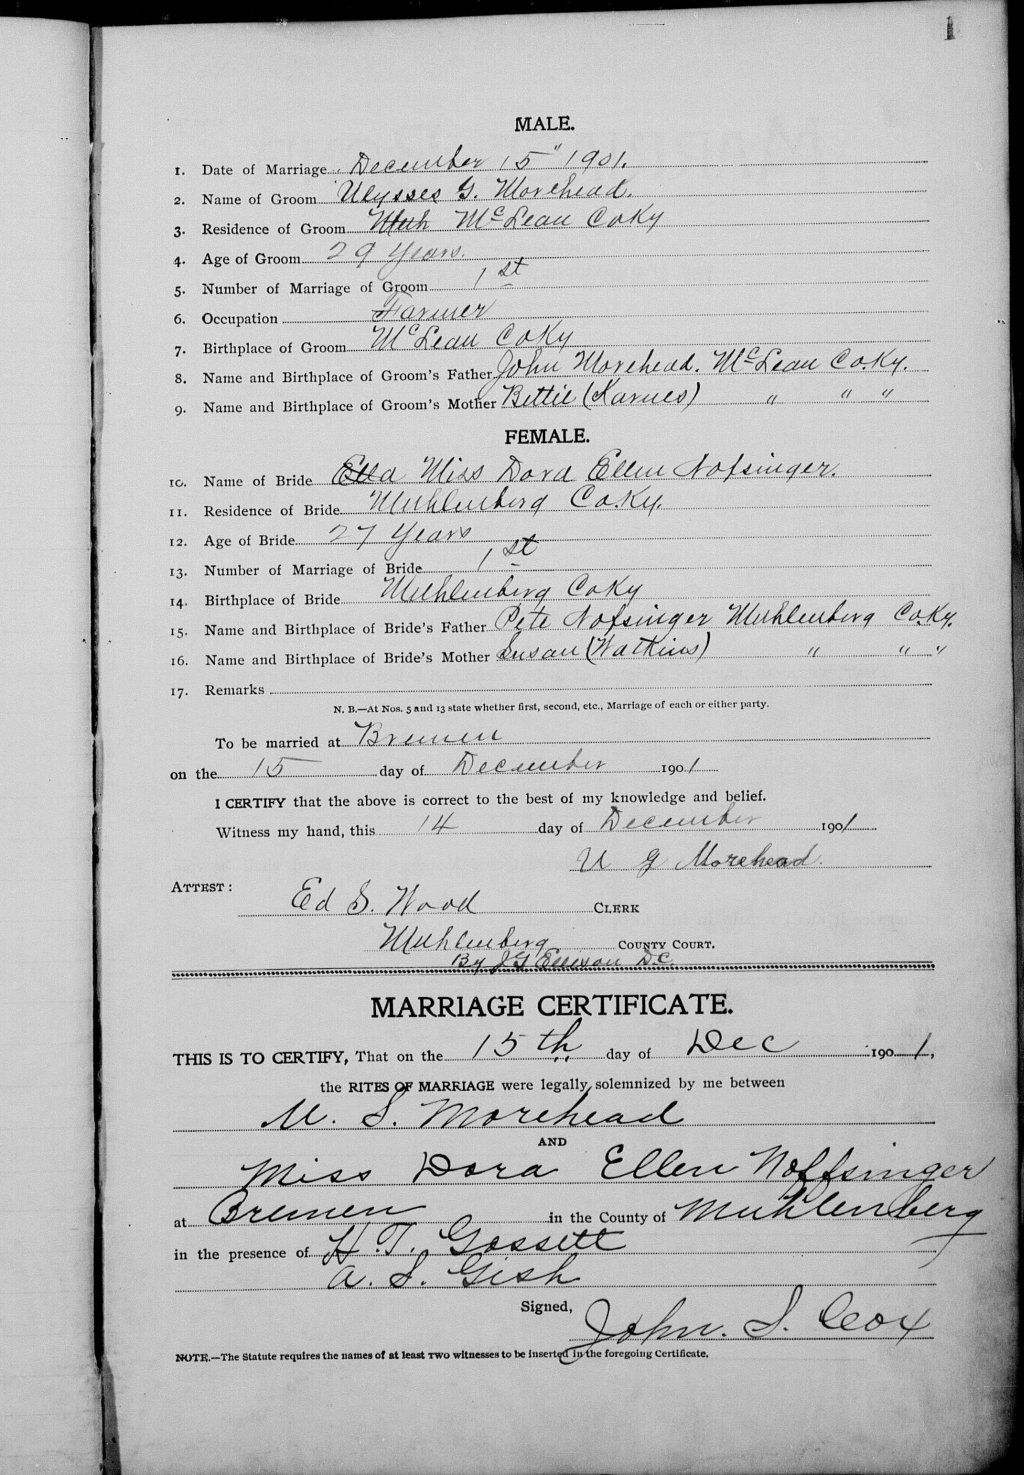 1
MALE.
1. Date of Marriage December 15" 1901.
2. Name of Groom Ulysses G. Morehead.
3. Residence of Groom McLean Co Ky
4. Age of Groom 29 Years.
5. Number of Marriage of Groom 1st
6. Occupation Farmer
7. Birthplace of Groom McLean Co Ky
8. Name and Birthplace of Groom's Father John Morehead. McLean Co. Ky.
9. Name and Birthplace of Groom's Mother Bettie (Karnes) " " "
FEMALE.
10. Name of Bride Ella Miss Dora Ellen Nofsinger.
11. Residence of Bride Muhlenberg Co. Ky.
12. Age of Bride 27 Years
13. Number of Marriage of Bride 1st
14. Birthplace of Bride Muhlenberg Co Ky
15. Name and Birthplace of Bride's Father Pete Nofsinger Muhlenberg Co. Ky.
16. Name and Birthplace of Bride's Mother Susan (Watkins) " " "
17. Remarks
N. B.—At Nos. 5 and 13 state whether first, second, etc., Marriage of each or either party.
To be married at Bremen
on the 15 day of December 1901
I CERTIFY that the above is correct to the best of my knowledge and belief.
Witness my hand, this 14 day of December 1901
U G Morehead.
ATTEST:
Ed S. Wood CLERK
Muhlenberg COUNTY COURT.
By J G Ellison D.C.
MARRIAGE CERTIFICATE.
THIS IS TO CERTIFY, That on the 15th day of Dec 1901,
the RITES OF MARRIAGE were legally solemnized by me between
U. S. Morehead
AND
Miss Dora Ellen Noffsinger
at Bremen in the County of Muhlenberg
in the presence of H. T. Gossett
A. S. Gish
Signed, John. S. Cox
NOTE.—The Statute requires the names of at least TWO witnesses to be inserted in the foregoing Certificate.